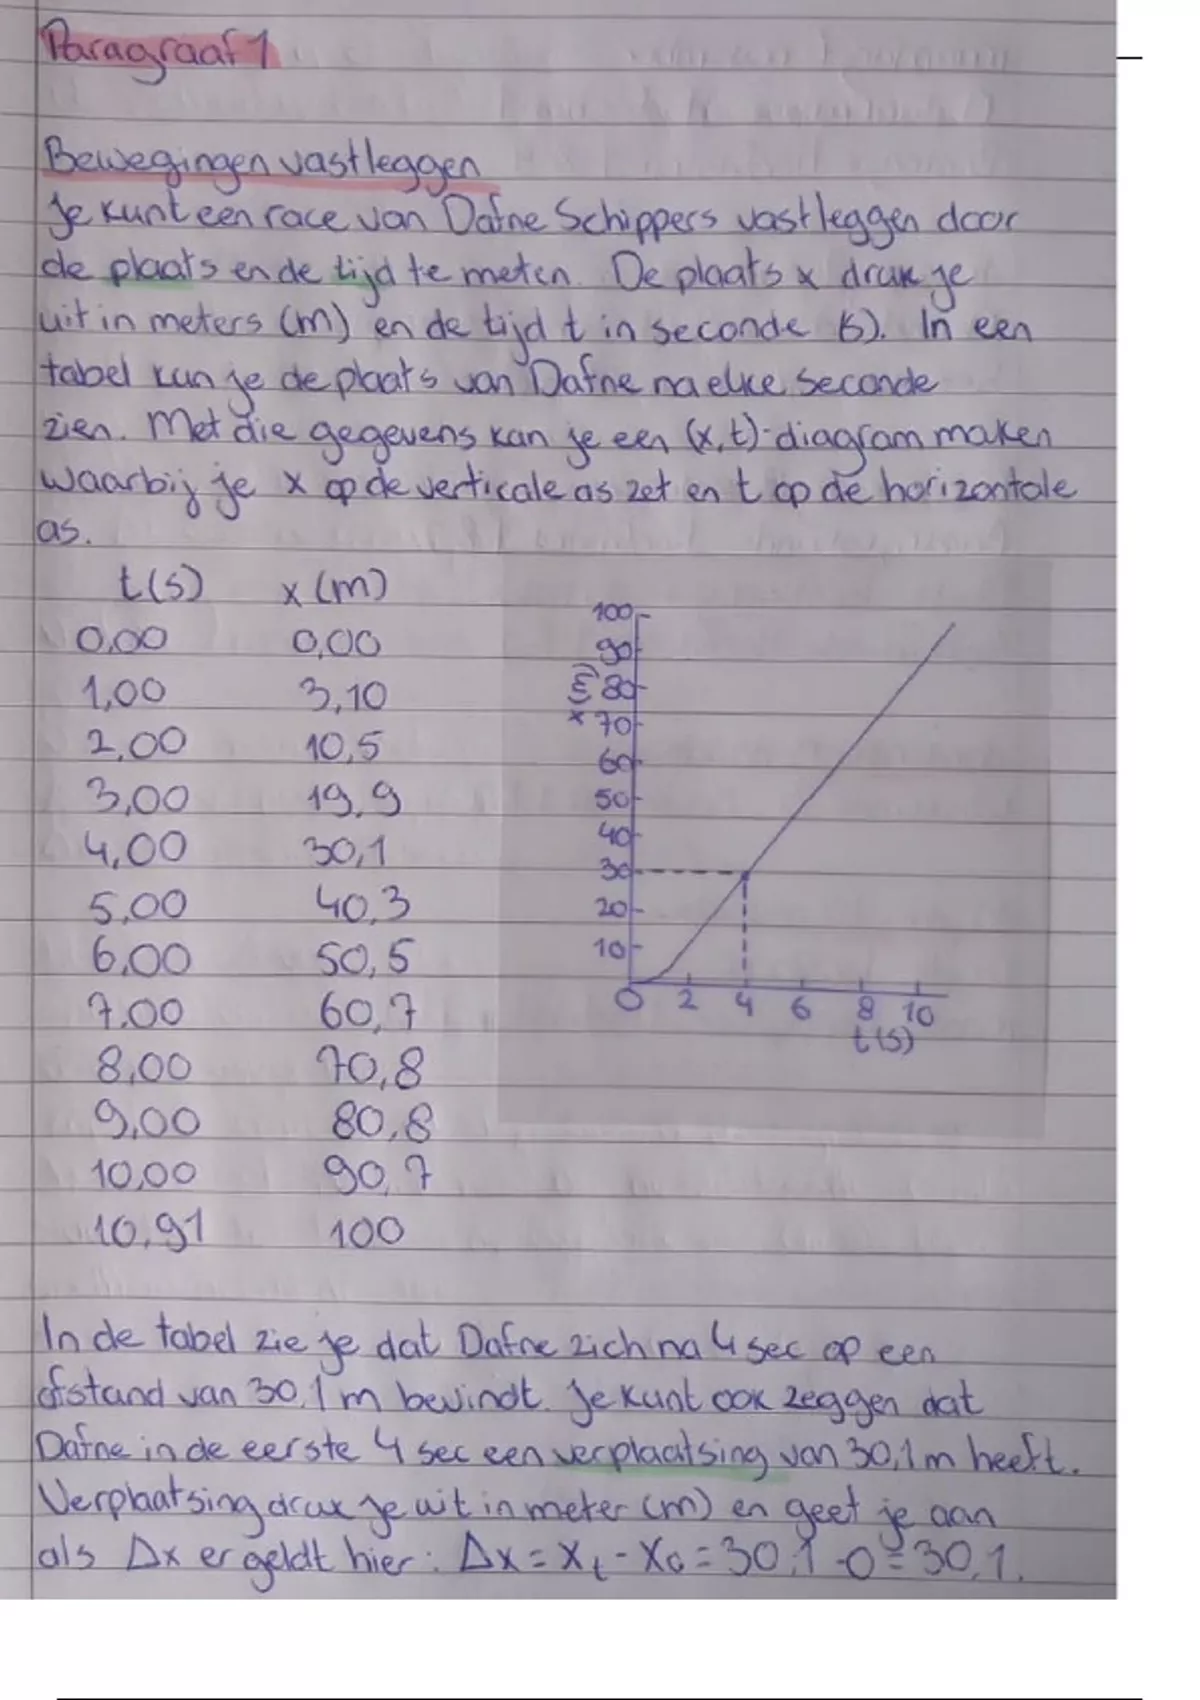 Paragraaf 1
Bewegingen vastleggen
Je kunt een race van Dafne Schippers vastleggen door
de plaats en de tijd te meten. De plaats x druk je
uit in meters (m) en de tijd t in seconde (s). In een
tabel kun je de plaats van Dafne na elke seconde
zien. Met die gegevens kan je een (x,t)-diagram maken
waarbij je x op de verticale as zet en t op de horizontale
as.
t(s) x (m)
0,00 0,00
1,00 3,10
2,00 10,5
3,00 19,9
4,00 30,1
5,00 40,3
6,00 50,5
7,00 60,7
8,00 70,8
9,00 80,8
10,00 90,7
10,91 100
100
90
80
70
60
50
40
30
20
10
x (m)
0 2 4 6 8 10
t(s)
In de tabel zie je dat Dafne zich na 4 sec op een
afstand van 30,1 m bevindt. Je kunt ook zeggen dat
Dafne in de eerste 4 sec een verplaatsing van 30,1 m heeft.
Verplaatsing druk je uit in meter (m) en geef je aan
als Δx er geldt hier: Δx = xt - x0 = 30,1 - 0 = 30,1.